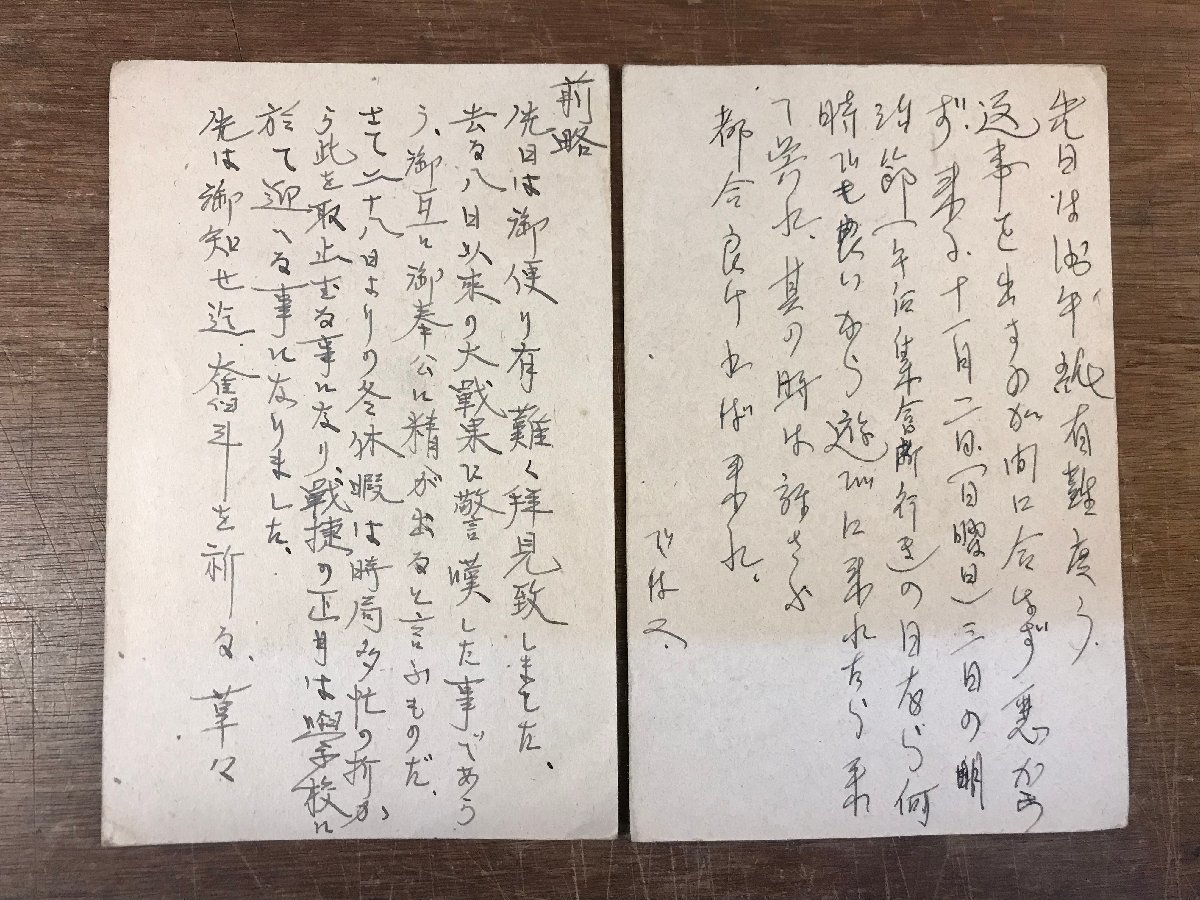 先日は御手紙有難度う。
返事を出すの が間に合はず悪かつ
ず 来る十一月二日(日曜日)三日の明
治節(午后集合断行き)の日なら何
時でも良いから遊びに来れたら来
て呉れ、其の時は話さふ
都合良ければ来れ。
では又
前略
先日は御便り有難く拝見致しました、
去る八日以来の大戦果に驚嘆した事であら
う、御互に御奉公に精が出ると言ふものだ、
さて二十八日よりの冬休暇は時局多忙の折か
ら此を取止まる事になり、戦捷の正月は學校に
於て迎へる事になりました、
先は御知せ迄 奮斗を祈る、草々